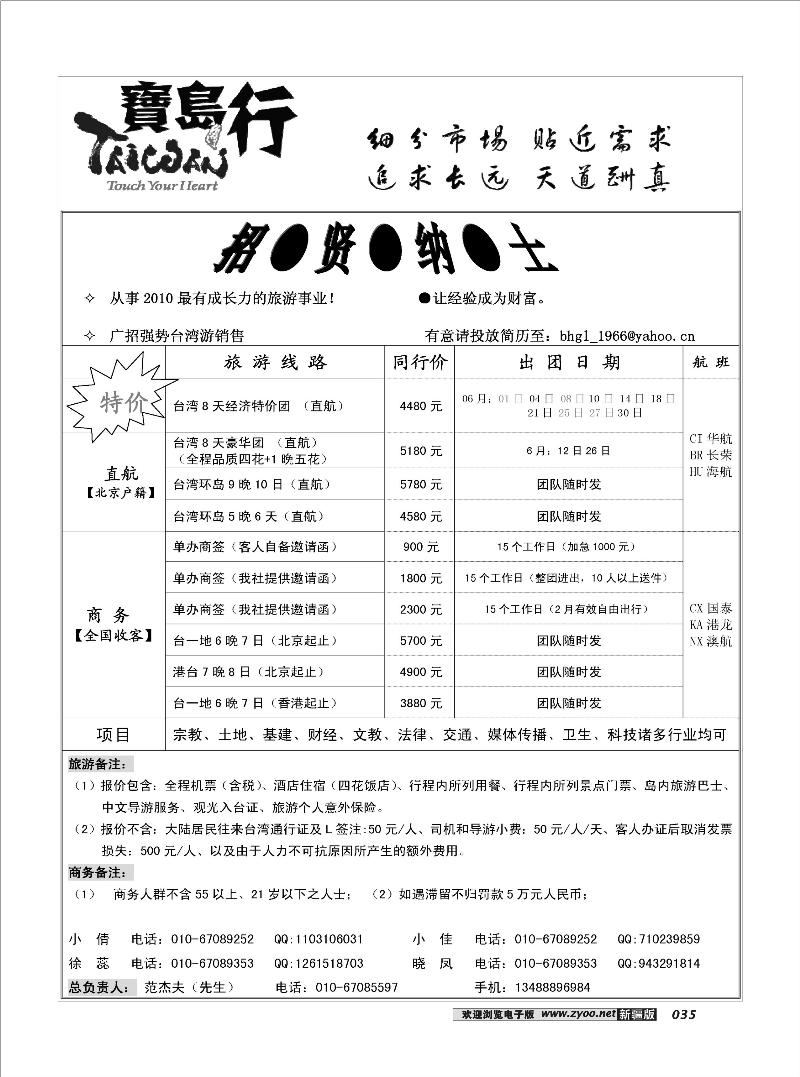 寶島行
TAIWAN
Touch Your Heart
细分市场 贴近需求
追求长远 天道酬真
招●贤●纳●士
✧ 从事2010最有成长力的旅游事业！ ●让经验成为财富。
✧ 广招强势台湾游销售 有意请投放简历至：bhgl_1966@yahoo.cn
旅游线路 同行价 出团日期 航班
特价
台湾8天经济特价团 （直航） 4480元 06月：01日 04日 08日 10日 14日 18日
21日 25日 27日 30日
直航
【北京户籍】
台湾8天豪华团 （直航）
（全程品质四花+1晚五花） 5180元 6月：12日26日
台湾环岛9晚10日（直航） 5780元 团队随时发
台湾环岛5晚6天（直航） 4580元 团队随时发
CI华航
BR长荣
HU海航
商务
【全国收客】
单办商签（客人自备邀请函） 900元 15个工作日（加急1000元）
单办商签（我社提供邀请函） 1800元 15个工作日（整团进出，10人以上送件）
单办商签（我社提供邀请函） 2300元 15个工作日（2月有效自由出行）
台一地6晚7日（北京起止） 5700元 团队随时发
港台7晚8日（北京起止） 4900元 团队随时发
台一地6晚7日（香港起止） 3880元 团队随时发
CX国泰
KA港龙
NX澳航
项目 宗教、土地、基建、财经、文教、法律、交通、媒体传播、卫生、科技诸多行业均可
旅游备注：
（1）报价包含：全程机票（含税）、酒店住宿（四花饭店）、行程内所列用餐、行程内所列景点门票、岛内旅游巴士、
中文导游服务、观光入台证、旅游个人意外保险。
（2）报价不含：大陆居民往来台湾通行证及L签注：50元/人、司机和导游小费：50元/人/天、客人办证后取消发票
损失：500元/人、以及由于人力不可抗原因所产生的额外费用。
商务备注：
（1） 商务人群不含55以上、21岁以下之人士； （2）如遇滞留不归罚款5万元人民币；
小倩 电话：010-67089252 QQ:1103106031 小佳 电话：010-67089252 QQ:710239859
徐蕊 电话：010-67089353 QQ:1261518703 晓凤 电话：010-67089353 QQ:943291814
总负责人： 范杰夫（先生） 电话：010-67085597 手机：13488896984
欢迎浏览电子版 www.zyoo.net 新疆版 035